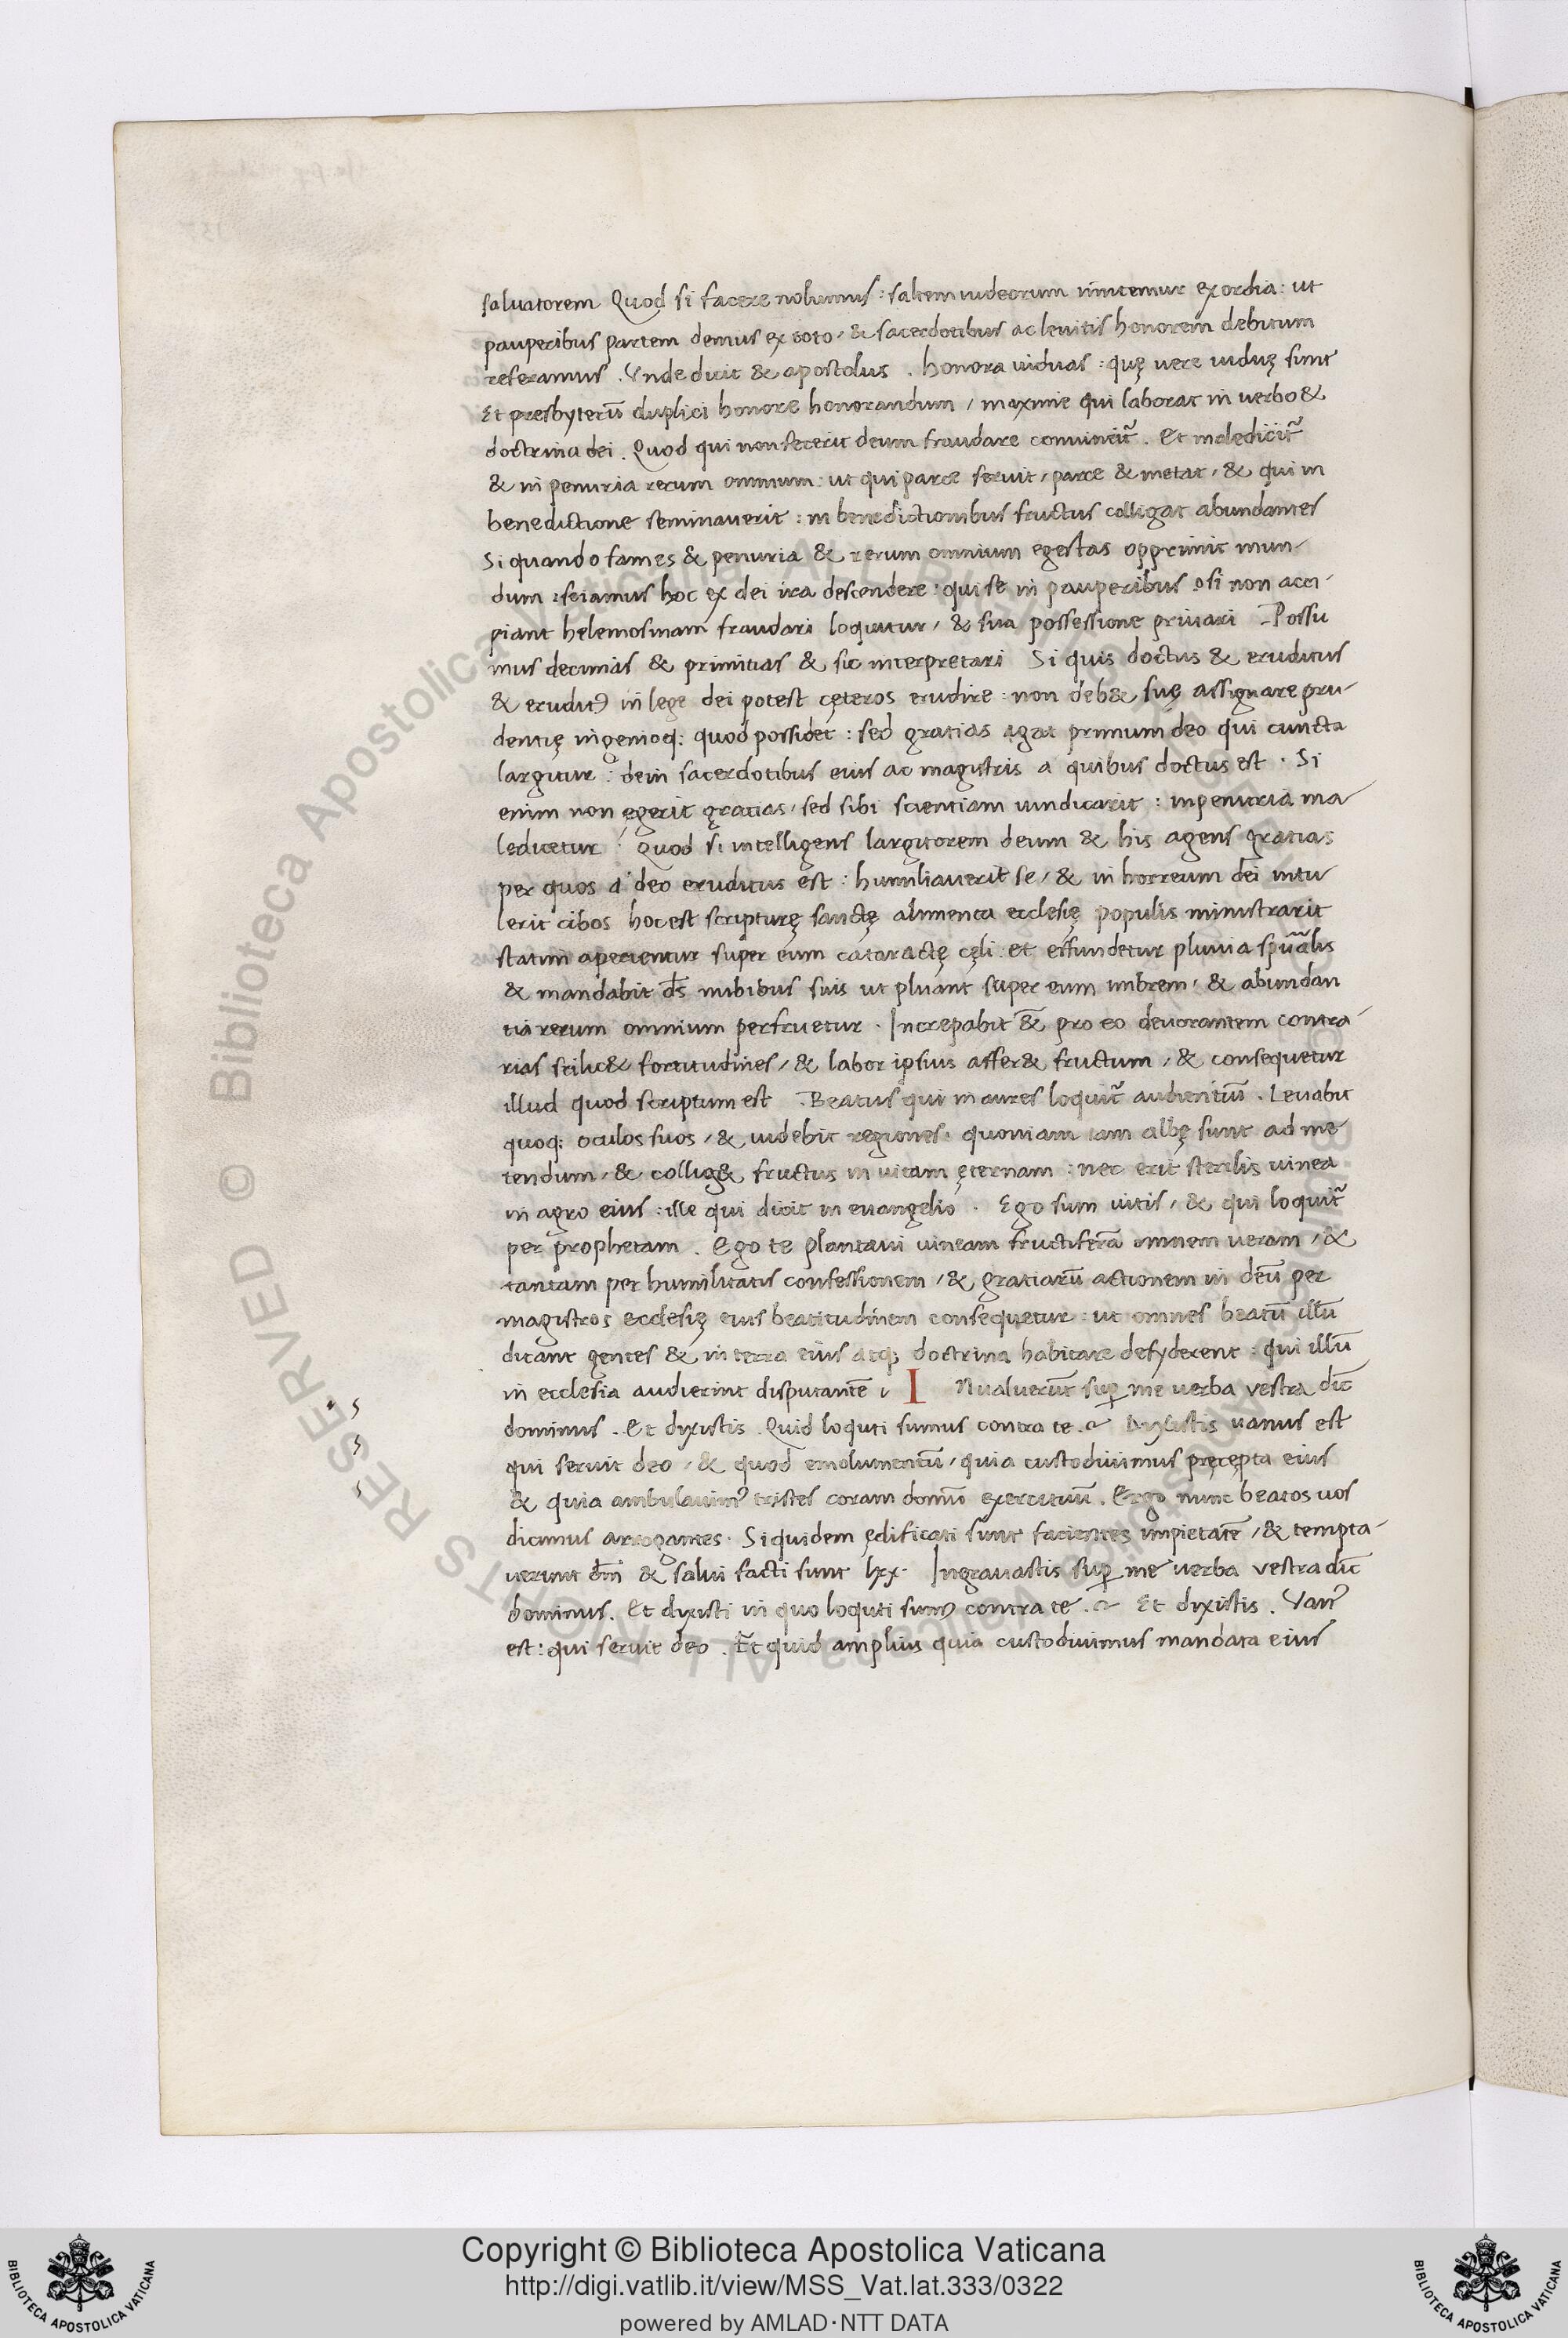 saluatorem Quod si facere nolumus : saltem iudeorum imitemur exordia : ut
pauperibus partem demus ex toto / & sacerdotibus ac leuitis honorem debitum
referamus . Vnde dicit & apostolus . honora uiduas : quę uere uiduę sunt
Et presbyterū duplici honore honorandum / maxime qui laborat in uerbo &
doctrina dei . Quod qui non fecerit deum fraudare conuincit᷑ . Et maledicit᷑
& in penuria rerum omnium : ut qui parce seruit / parce & metat / & qui in
benedictione seminauerit : in benedictionibus fructus colligat abundantes
Si quando fames & penuria & rerum omnium egestas opprimit mun-
dum : sciamus hoc ex dei ira descendere : qui se in pauperibus si non acci-
piant helemosinam fraudari loquitur / & sua possessione priuari Possu
mus decimas & primitias & sic interpretari Si quis doctus & eruditus
& eruditꝰ in lege dei potest cęteros erudire : non deb& suę assignare pru-
dentię ingenioq; quod possidet : sed gratias agat primum deo qui cuncta
largitur : dein sacerdotibus eius ac magistris a quibus doctus est . Si
enim non egerit gratias / sed sibi scientiam uindicarit : in penuria ma-
ledicetur : Quod si intelligens largitorem deum & his agens gratias
per quos a deo eruditus est : humiliauerit se / & in horreum dei intu
lerit cibos hoc est scripturę sanctę alimenta ecclesię populis ministrarit
statim aperientur super eum cataractę cęli : et effundetur pluuia spūalis
& mandabit d̄s nubibus suis ut pluant super eum imbrem / & abundan
tia rerum omnium perfruetur . Increpabit &̄ pro eo deuorantem contra-
rias scilic& fortitudines / & labor ipsius affer& fructum / & consequetur
illud quod scriptum est . Beatus qui in aures loquit᷑ audientiū . Leuabit
quoq; oculos suos / & uidebit regiones : quoniam iam albę sunt ad me
tendum / & collig& fructus in uitam ęternam : nec erit sterilis uinea
in agro eius : ille qui dicit in euangelio . Ego sum uitis / & qui loquit᷑
per prophetam . Ego te plantaui uineam fructiferā omnem ueram / &
tantam per humilitatis confessionem / & gratiarū actionem in deū per
magistros ecclesię eius beatitudinem consequetur : ut omnes beatū illū
dicant gentes & in terra eius atq; doctrina habitare desyderent : qui illū
in ecclesia audierint disputantē I Nualuerūt suꝑ me uerba vestra dic̄
dominus . Et dixistis . Quid loquti sumus contra te . Dixistis uanus est
qui seruit deo / & quod emolumentū / quia custodiuimus pręcępta eius
& quia ambulauimꝰ tristes coram domīo exercituū . Ergo nunc beatos uos
dicimus arrogantes . Siquidem ędificati sunt facientes impietatē / & tempta-
uerunt dm̄ & salui facti sunt lxx . Ingrauastis suꝑ me uerba vestra dic̄
dominus . Et dixisti in quo loquti sumꝰ contra te . Et dixistis . Vanꝰ
est : qui seruit deo . Et quid amplius quia custodiuimus mandata eius
Copyright © Biblioteca Apostolica Vaticana
http://digi.vatlib.it/view/MSS_Vat.lat.333/0322
powered by AMLAD·NTT DATA